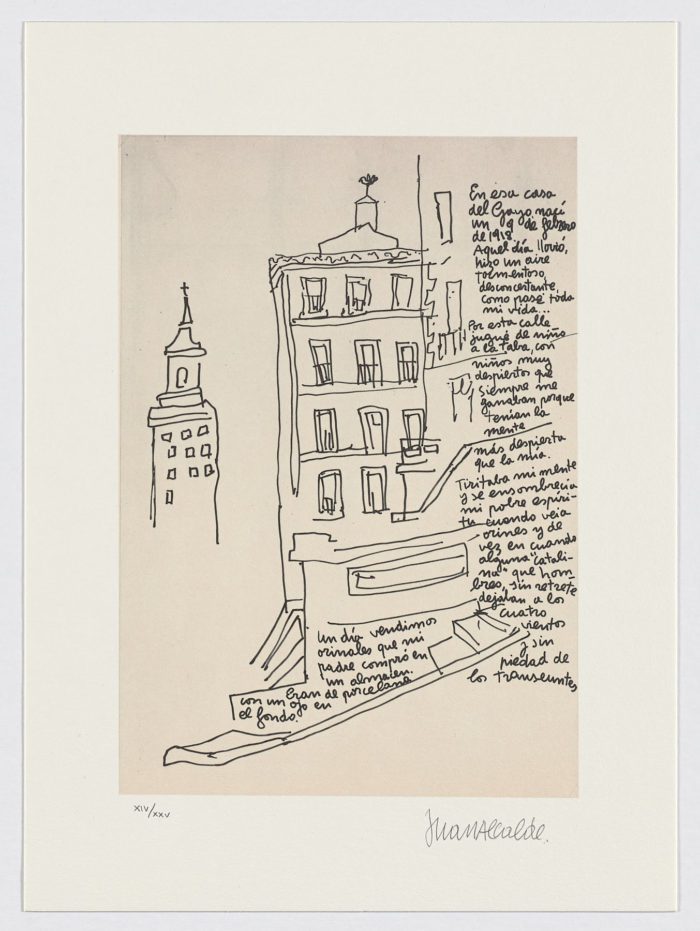 En esa casa
del Gayo nací
un 9 de febrero
de 1918.
Aquel día llovió,
hizo un aire
tormentoso,
desconcertante,
como pasé toda
mi vida...
Por esta calle
jugué de niño
a la taba, con
niños muy
despiertos que
siempre me
ganaban porque
tenían la
mente
más despierta
que la mía.
Tiritaba mi mente
y se ensombrecía
mi pobre espíri-
tu cuando veía
orines y de
vez en cuando
alguna "catali-
na" que hom-
bres, sin retrete
dejaban a los
cuatro
vientos
y sin
piedad de
los transeuntes
Un día vendimos
orinales que mi
padre compró en
un almacen.
Eran de porcelana
con un ojo en
el fondo.
XIV/XXV
Juan Alcalde.